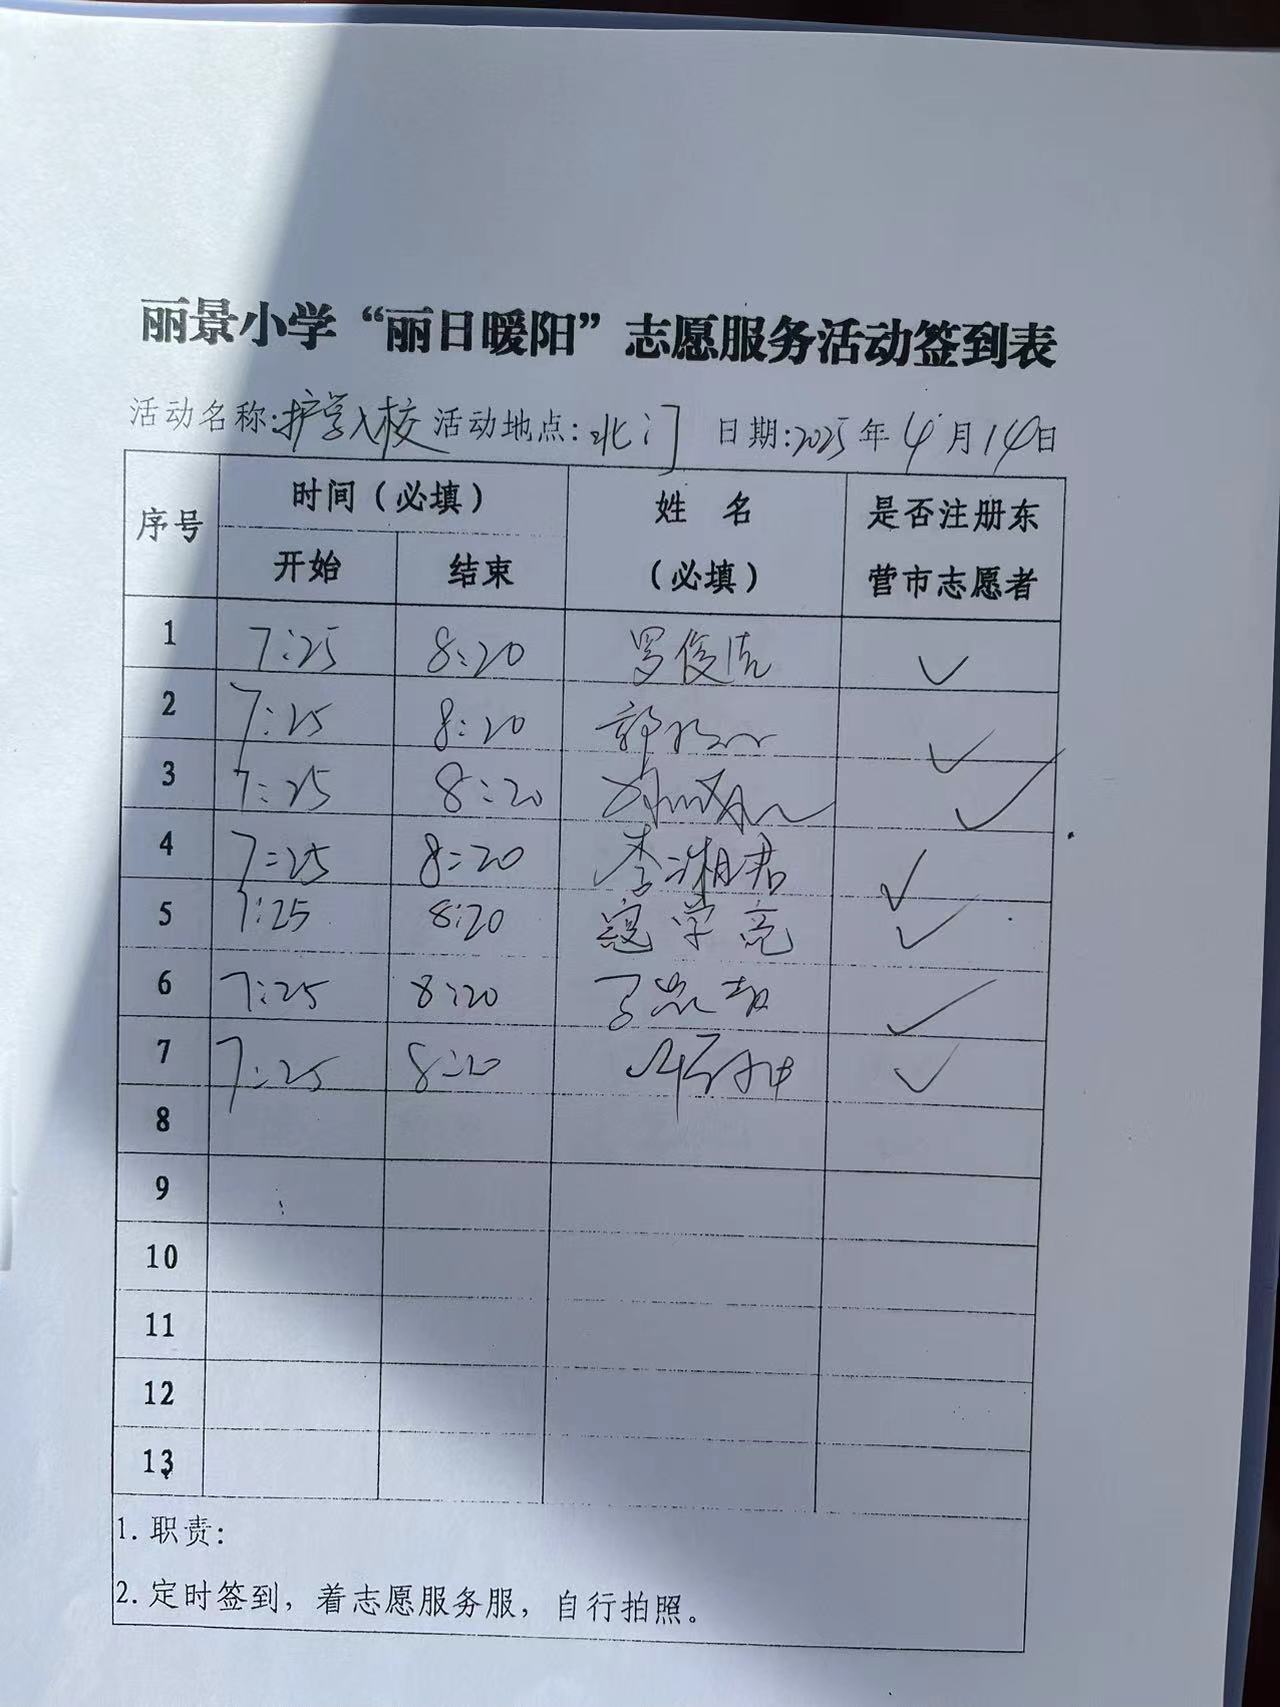 丽景小学“丽日暖阳”志愿服务活动签到表
活动名称:护学入校 活动地点:北门 日期:2025年4月14日
序号 时间（必填） 姓名（必填） 是否注册东营市志愿者
开始 结束
1 7:25 8:20 罗俊 ✓
2 7:25 8:20 郭 ✓
3 7:25 8:20 ✓
4 7:25 8:20 李湘君 ✓
5 7:25 8:20 寇学亮 ✓
6 7:25 8:20 ✓
7 7:25 8:20 ✓
8
9
10
11
12
13
1. 职责:
2. 定时签到，着志愿服务服，自行拍照。